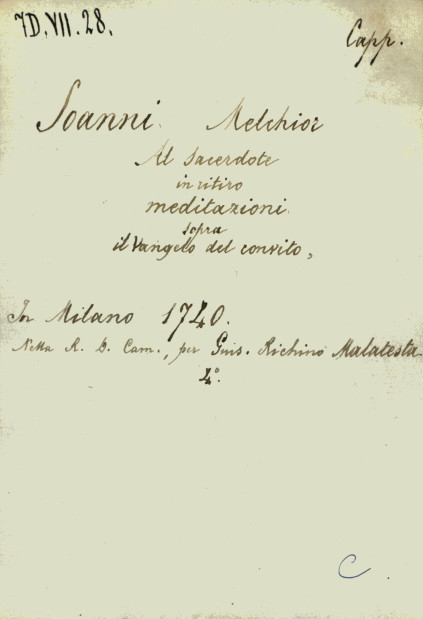 7D.VII.28.
Capp.
Joanni Melchior
Al Sacerdote
in ritiro
meditazioni
sopra
il Vangelo del convito,
In Milano 1740.
Nella R. D. Cam., per Gius. Richino Malatesta.
4°.
C.